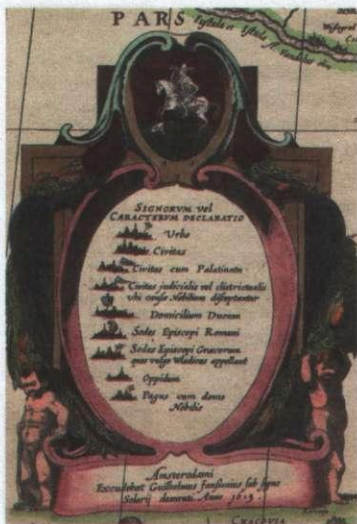 PARS
SIGNORVM vel
CARACTERVM DECLARATIO
Urbs
Civitas
Civitas cum Palatinatu
Civitas judicialis vel districtualis
ubi causæ Nobilium disceptantur
Domicilium Ducum
Sedes Episcopi Romani
Sedes Episcopi Græcorum
quos vulgo Wladicas appellant
Oppidum
Pagus cum domo
Nobilis
Amsterodami
Excudebat Guilhelmus Janssonius sub signo
Solarij deaurati Anno 1613